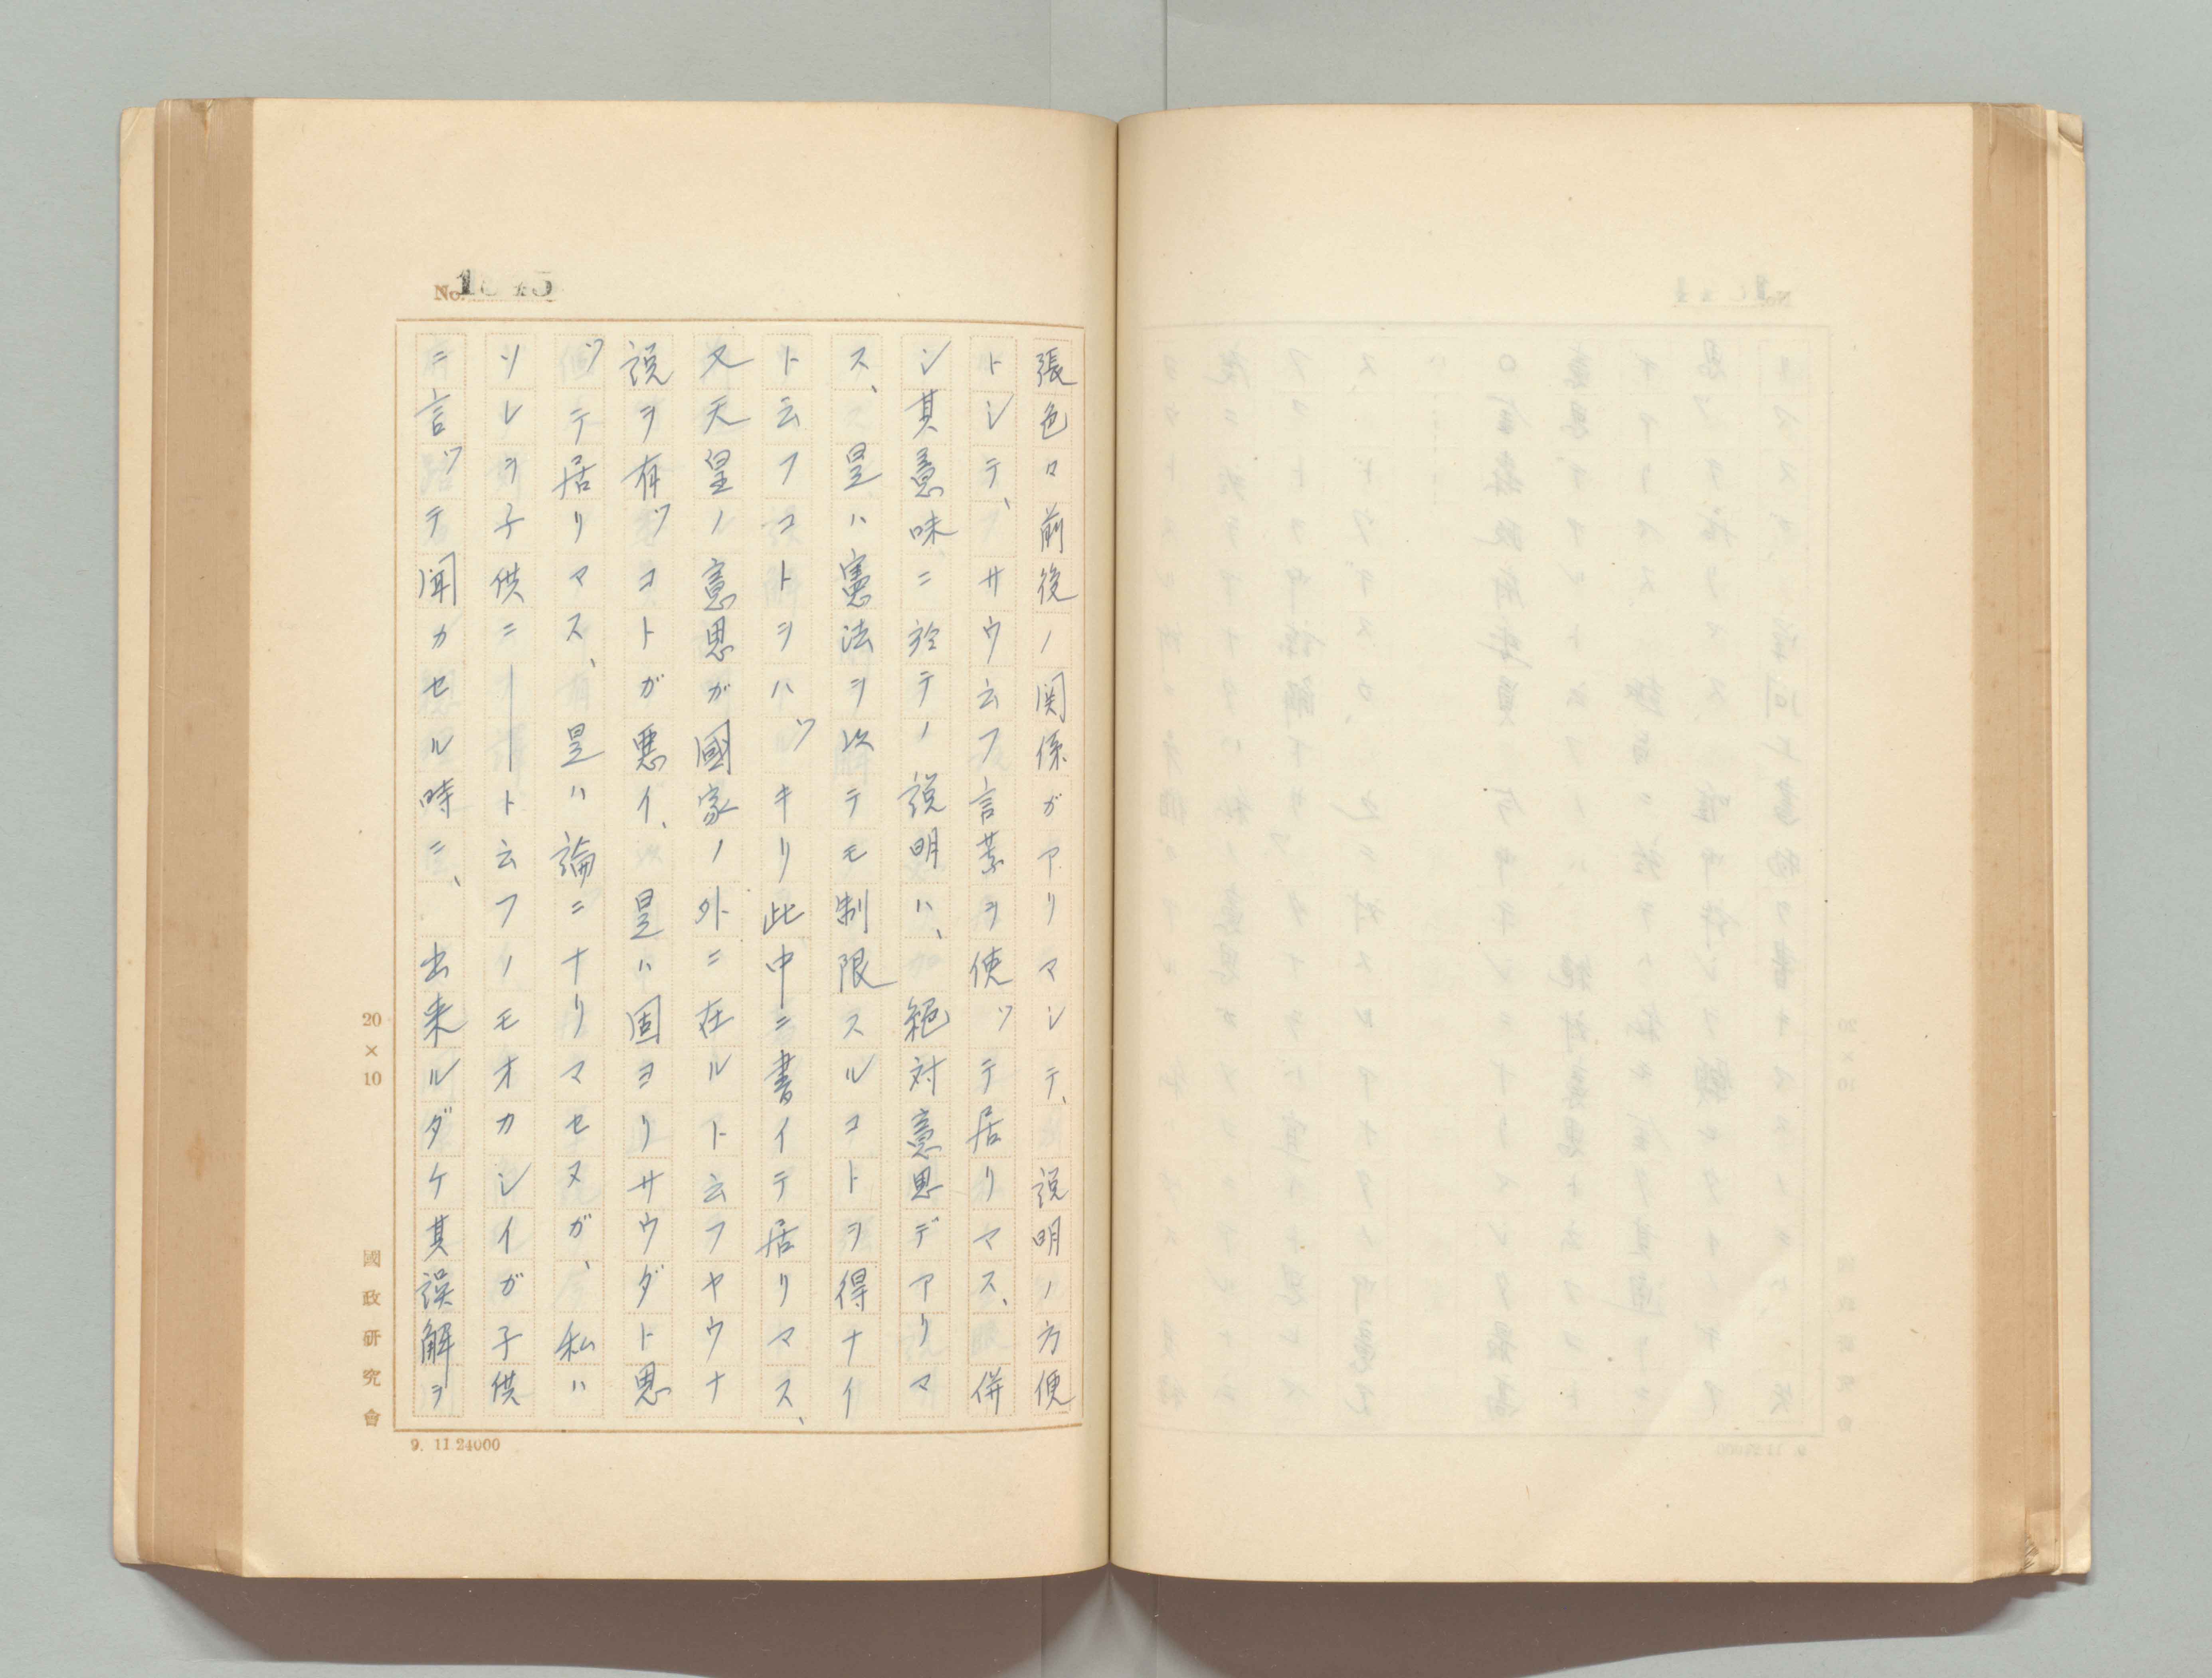 張色々前後ノ関係ガアリマシテ、説明ノ方便
トシテ、サウ云フ言葉ヲ使ツテ居リマス、併
シ其意味ニ於テノ説明ハ、絶対意思デアリマ
ス、是ハ憲法ヲ以テモ制限スルコトヲ得ナイ
ト云フコトヲハツキリ此中ニ書イテ居リマス、
又天皇ノ意思ガ國家ノ外ニ在ルト云フヤウナ
説ヲ有ツコトガ悪イ、是ハ固ヨリサウダト思
ツテ居リマス、是ハ論ニナリマセヌガ、私ハ
ソレヲ子供ニ――ト云フノモオカシイガ子供
ニ言ツテ聞カセル時ニ、出来ルダケ其誤解ヲ
20×10
國政研究會
9. 11 24000